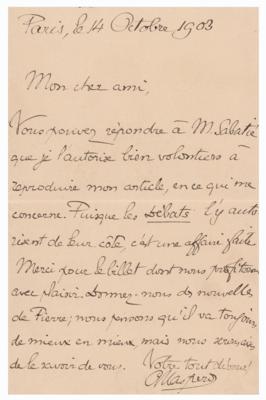 Paris, le 14 Octobre 1903
Mon cher ami,
Vous pouvez répondre à M. Sabatié
que je l'autorise bien volontiers à
reproduire mon article, en ce qui me
concerne. Puisque les Débats l'y auto
risent de leur côté c'est une affaire faite
Merci pour le billet dont nous profiterons
avec plaisir. Donnez-nous des nouvelles
de Pierre; nous pensons qu'il va toujours
de mieux en mieux, mais nous
de le savoir de vous.
Votre tout dévoué
GMaspero